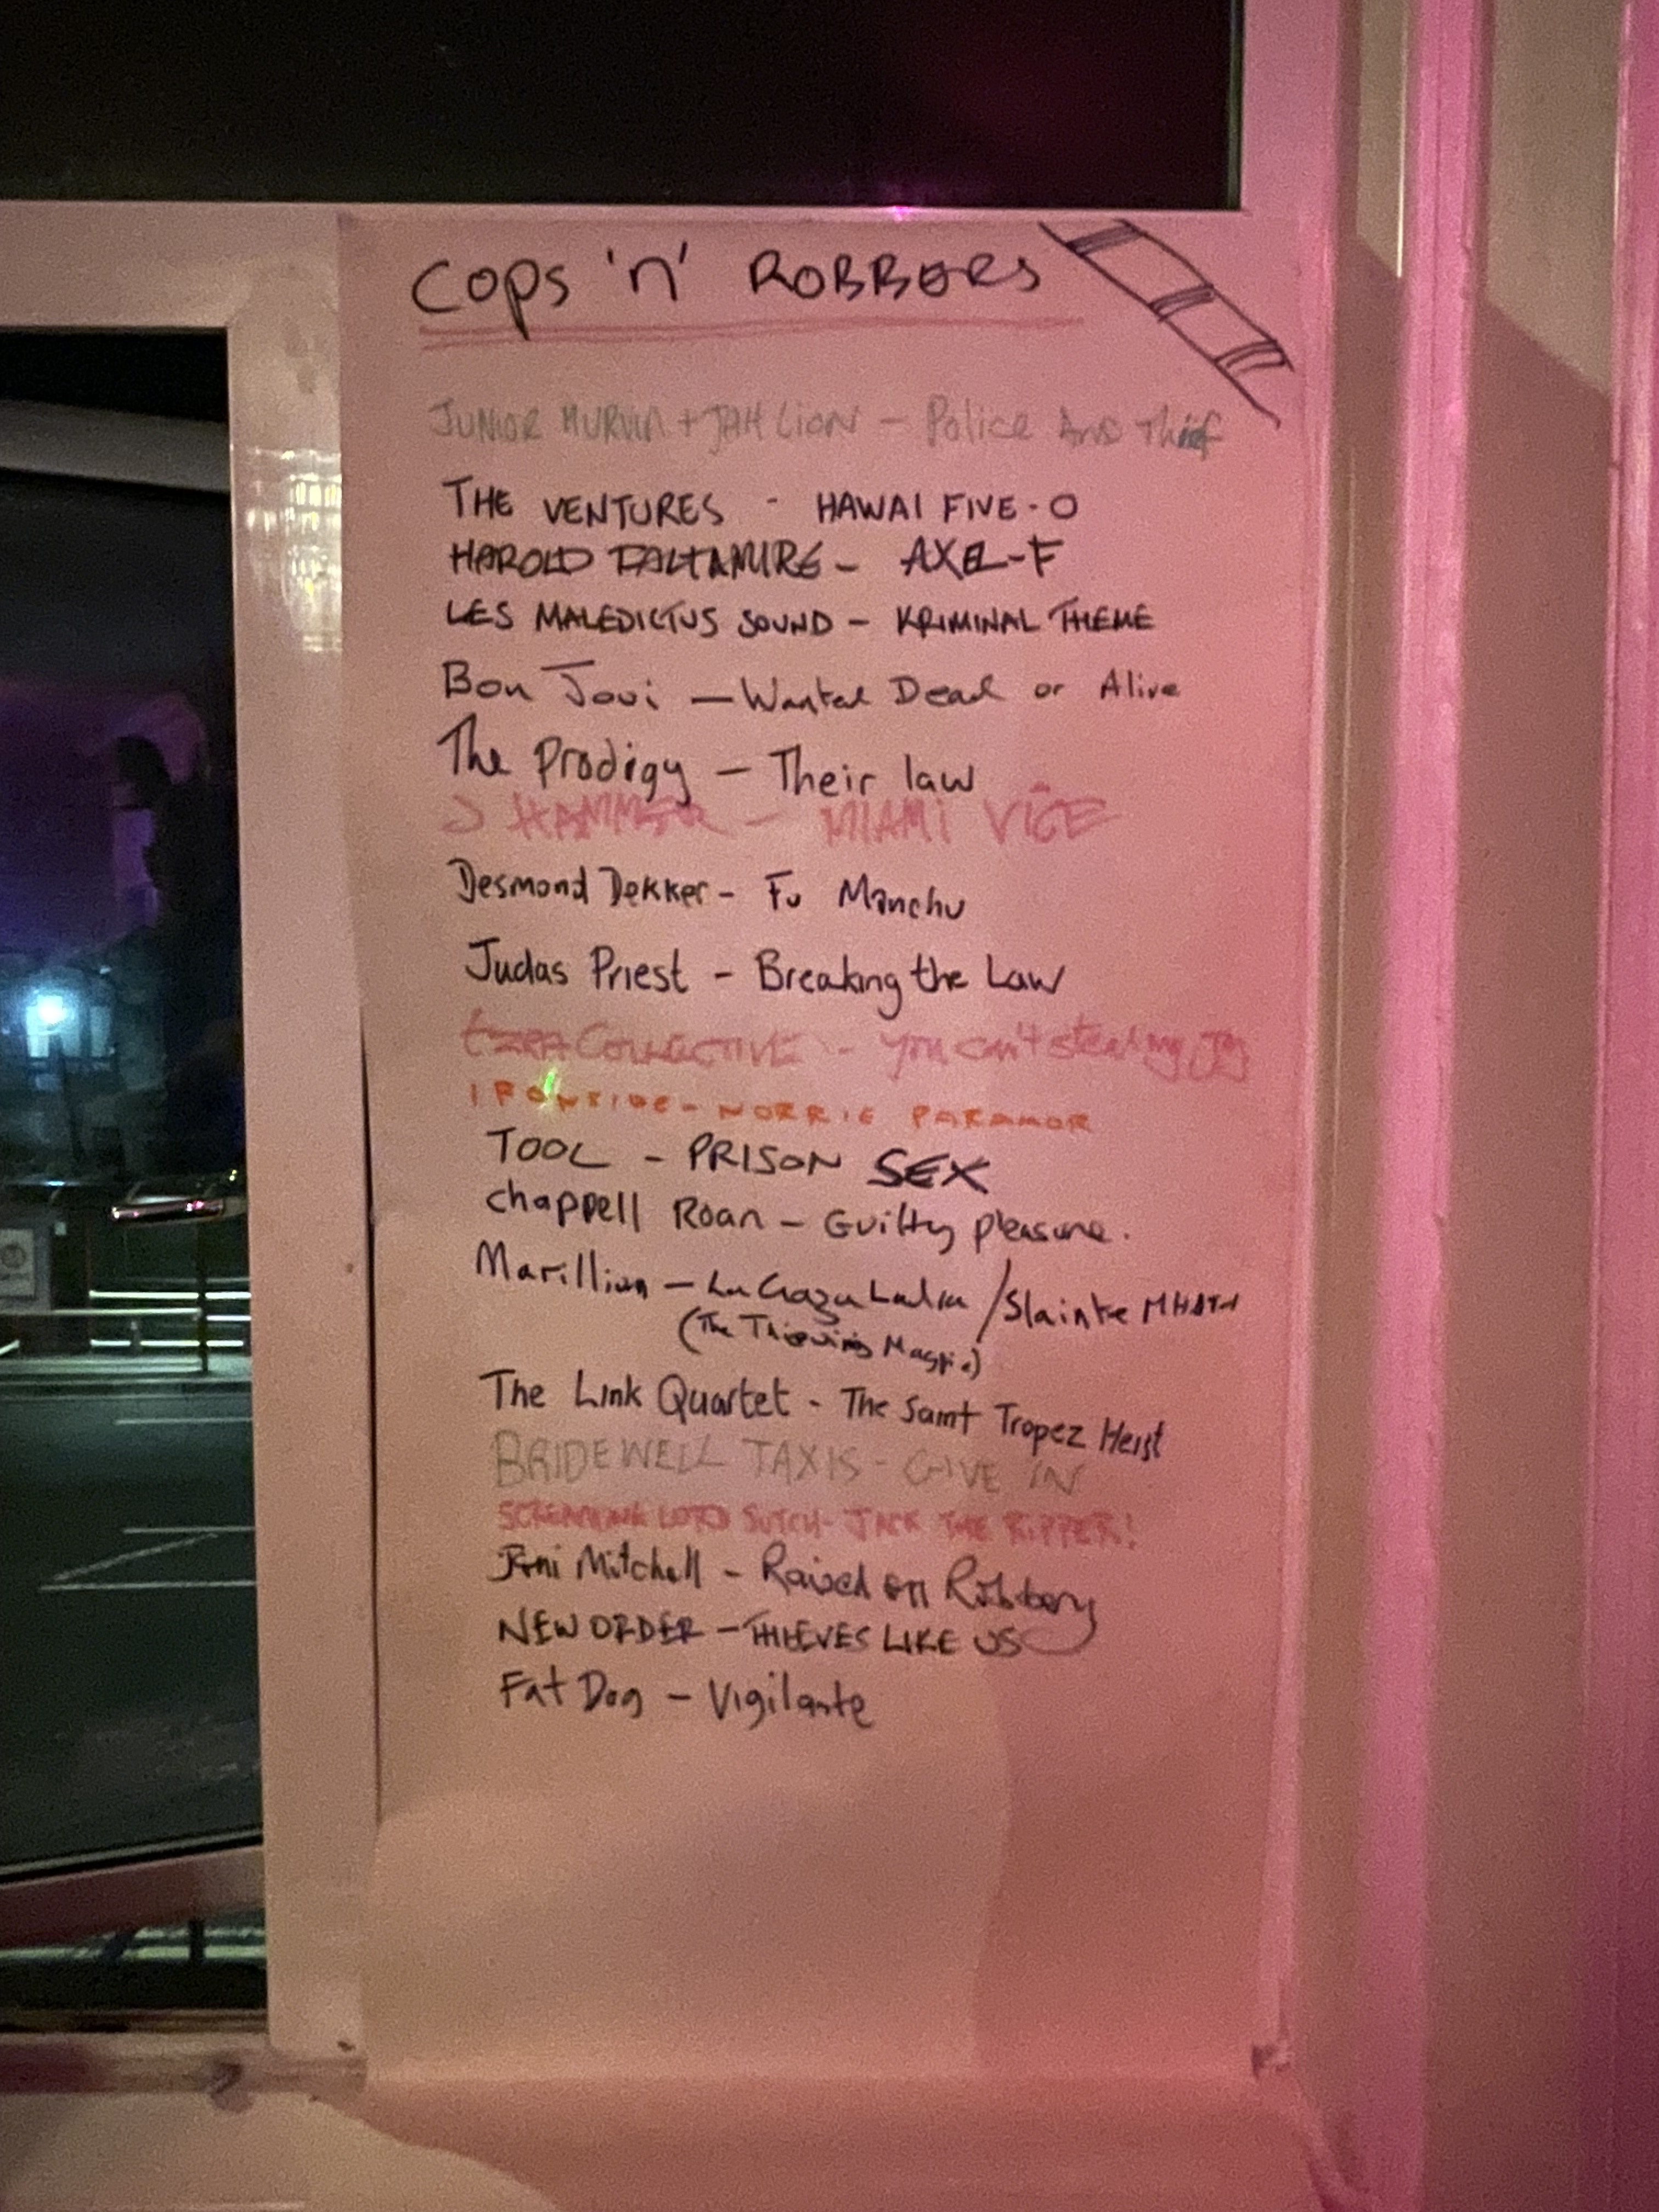 Cops 'n' ROBBERS
JUNIOR MURVIN + JAH LION - Police AND Thief
THE VENTURES - HAWAI FIVE-O
HAROLD FALTAMIRE - AXEL-F
LES MALEDICTUS SOUND - KRIMINAL THEME
Bon Jovi - Wanted Dead or Alive
The Prodigy - Their law
J HAMMER - MIAMI VICE
Desmond Dekker - Fu Manchu
Judas Priest - Breaking the Law
EZRA COLLECTIVE - You can't steal my Joy
IRONSIDE - NORRIE PARAMOR
TOOL - PRISON SEX
Chappell Roan - Guilty pleasure.
Marillion - La Gazza Ladra / Slainte MHATH
(The Thieving Magpie)
The Link Quartet - The Saint Tropez Heist
BRIDEWELL TAXIS - GIVE IN
SCREAMING LORD SUTCH - JACK THE RIPPER!
Joni Mitchell - Raised on Robbery
NEW ORDER - THIEVES LIKE US
Fat Dog - Vigilante